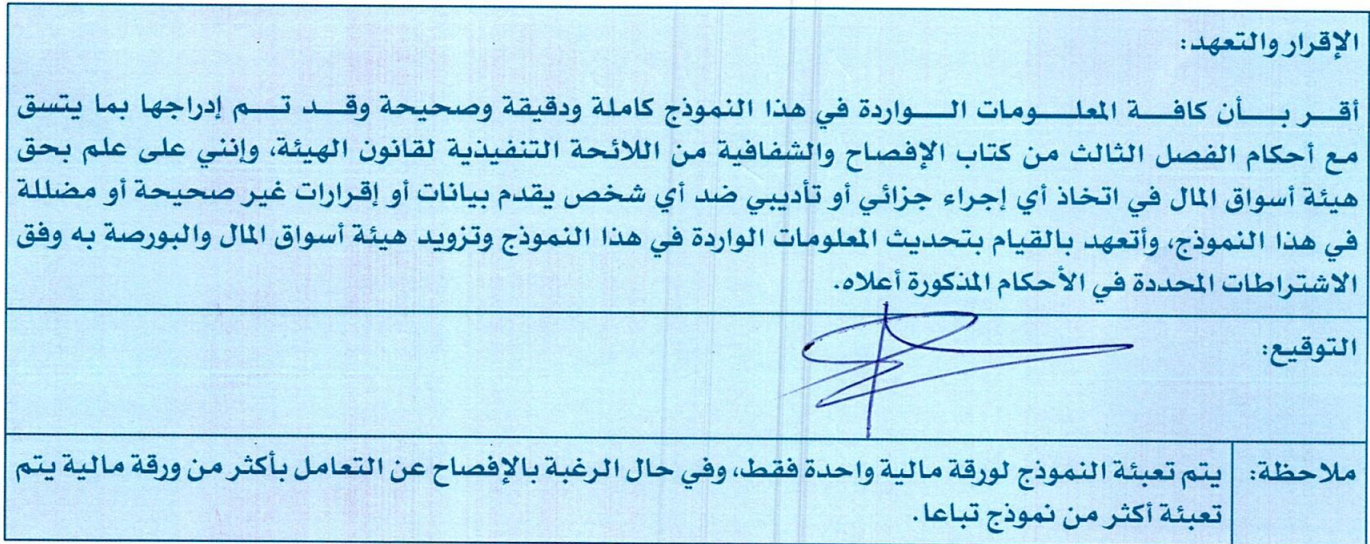 الإقرار والتعهد:
أقــر بــــأن كافــــة المعلــــومات الــــواردة في هذا النموذج كاملة ودقيقة وصحيحة وقــد تــم إدراجها بما يتسق
مع أحكام الفصل الثالث من كتاب الإفصاح والشفافية من اللائحة التنفيذية لقانون الهيئة، وإنني على علم بحق
هيئة أسواق المال في اتخاذ أي إجراء جزائي أو تأديبي ضد أي شخص يقدم بيانات أو إقرارات غير صحيحة أو مضللة
في هذا النموذج، وأتعهد بالقيام بتحديث المعلومات الواردة في هذا النموذج وتزويد هيئة أسواق المال والبورصة به وفق
الاشتراطات المحددة في الأحكام المذكورة أعلاه.
التوقيع:
ملاحظة: يتم تعبئة النموذج لورقة مالية واحدة فقط، وفي حال الرغبة بالإفصاح عن التعامل بأكثر من ورقة مالية يتم
تعبئة أكثر من نموذج تباعا.